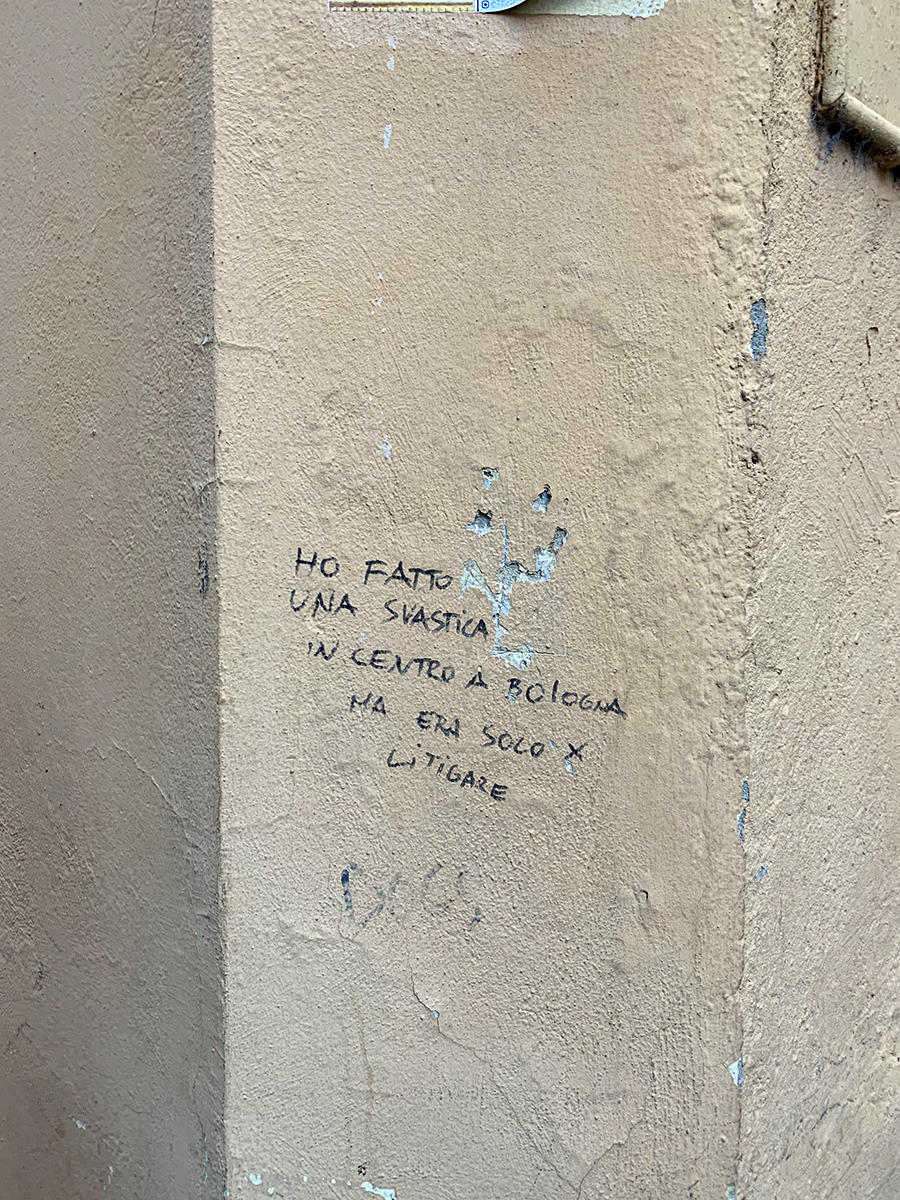 HO FATTO
UNA SVASTiCA
iN CENTRO A BOlOGNA
MA ERA SOLO X
LiTiGARE